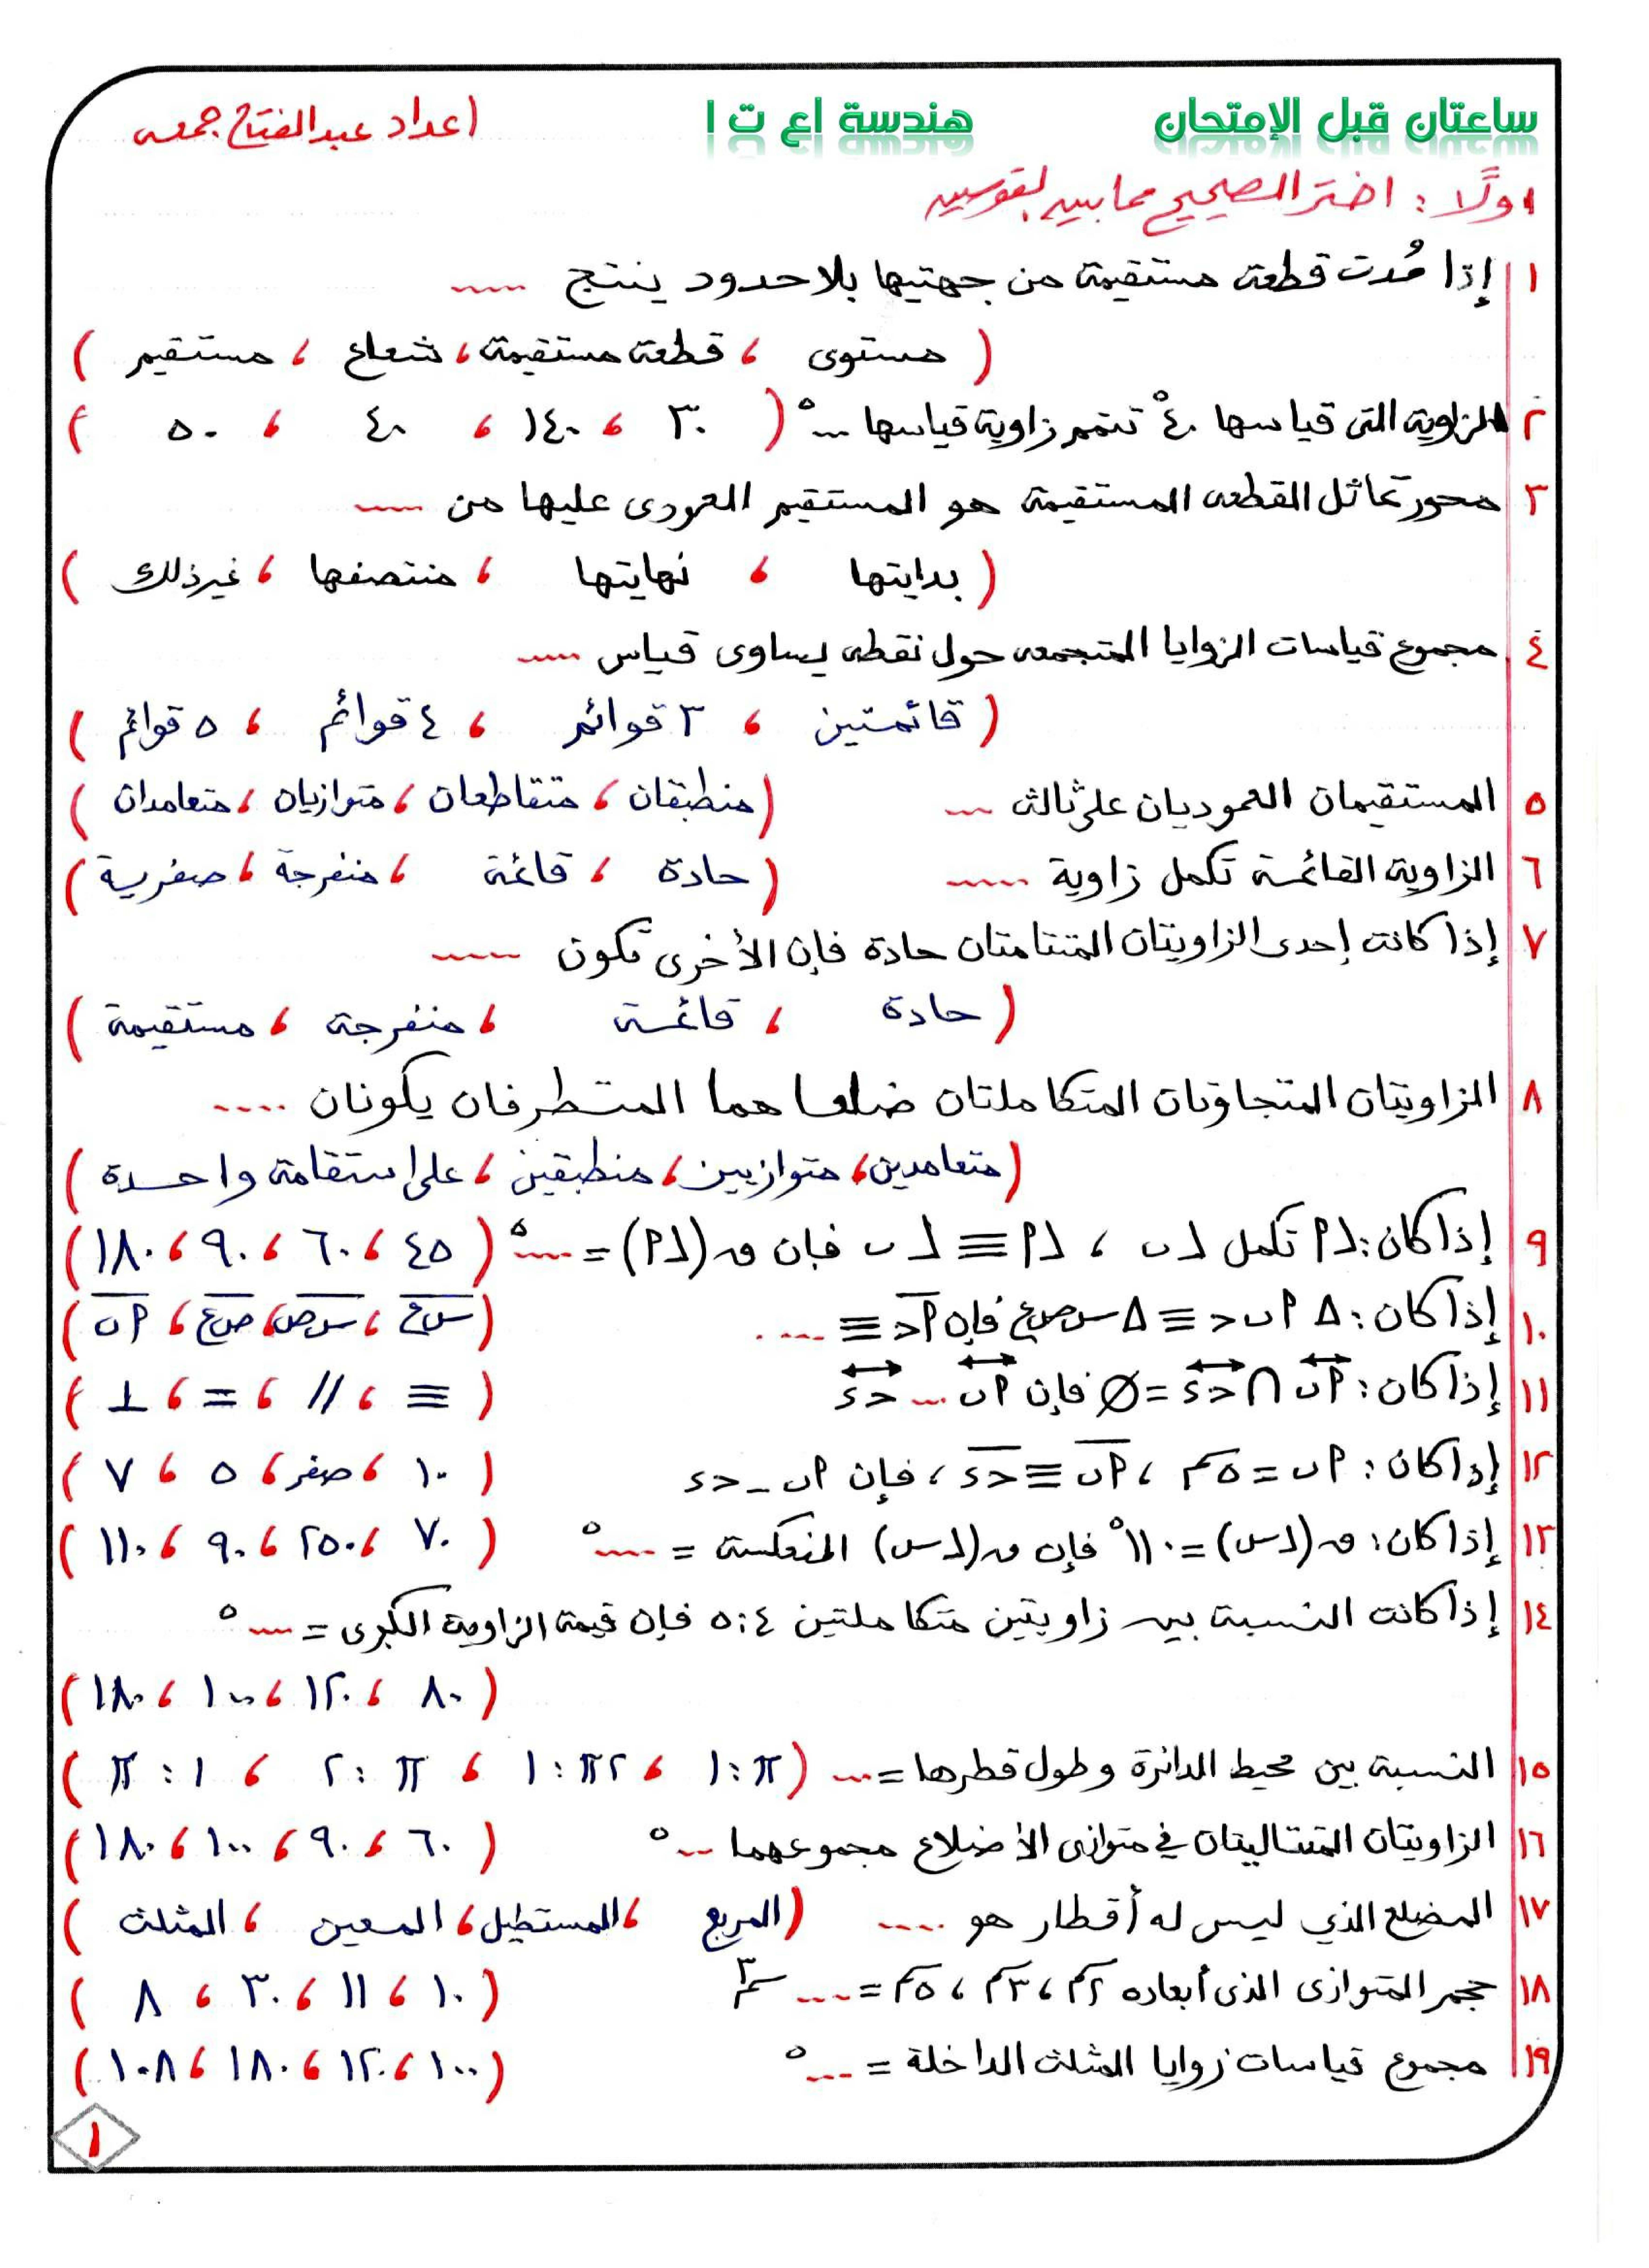 ساعتان قبل الإمتحان هندسة اع ت ١ اعداد عبدالفتاح جمعه
اولًا : اختر الصحيح مما بين القوسين
١ إذا مُدت قطعة مستقيمة من جهتيها بلا حدود ينتج .....
( مستوى ، قطعة مستقيمة ، شعاع ، مستقيم )
٢ الزاوية التى قياسها ٤٠° تتمم زاوية قياسها ...° ( ٣٠ ، ١٤٠ ، ٤٠ ، ٥٠ )
٣ محور تماثل القطعه المستقيمة هو المستقيم العمودى عليها من .....
( بدايتها ، نهايتها ، منتصفها ، غير ذلك )
٤ مجموع قياسات الزوايا المتجمعه حول نقطه يساوى قياس .....
( قائمتين ، ٣ قوائم ، ٤ قوائم ، ٥ قوائم )
٥ المستقيمان العموديان على ثالث ... ( منطبقان ، متقاطعان ، متوازيان ، متعامدان )
٦ الزاوية القائمة تكمل زاوية ..... ( حادة ، قائمة ، منفرجة ، صفرية )
٧ إذا كانت إحدى الزاويتان المتتامتان حادة فإن الأخرى تكون .....
( حادة ، قائمة ، منفرجة ، مستقيمة )
٨ الزاويتان المتجاوتان المتكاملتان ضلعاهما المتطرفان يكونان ....
( متعامدين ، متوازيين ، منطبقين ، على استقامة واحدة )
٩ إذا كان : ∠P تكمل ∠ب ، ∠P ≡ ∠ب فإن ق(∠P) = ....° ( ٤٥ ، ٦٠ ، ٩٠ ، ١٨٠ )
١٠ إذا كان : Δ P ب ح ≡ Δ س ص ع فإن P ح ≡ .... ( س ع ، س ص ، ص ع ، P ب )
١١ إذا كان : P ب ∩ ح ء = ∅ فإن P ب ... ح ء ( ≡ ، // ، = ، ⊥ )
١٢ إذا كان : P ب = ٥سم ، P ب ≡ ح ء ، فإن P ب _ ح ء ( ١٠ ، صفر ، ٥ ، ٧ )
١٣ إذا كان : ق(∠س) = ١١٠° فإن ق(∠س) المنعكسة = ....° ( ٧٠ ، ٢٥٠ ، ٩٠ ، ١١٠ )
١٤ إذا كانت النسبة بين زاويتين متكاملتين ٤ : ٥ فإن قيمة الزاوية الكبرى = ....°
( ٨٠ ، ١٢٠ ، ١٠٠ ، ١٨٠ )
١٥ النسبة بين محيط الدائرة وطول قطرها = ... ( π : ١ ، ٢π : ١ ، π : ٢ ، ١ : π )
١٦ الزاويتان المتتاليتان في متوازى الأضلاع مجموعهما ...° ( ٦٠ ، ٩٠ ، ١٠٠ ، ١٨٠ )
١٧ المضلع الذي ليس له أقطار هو .... ( المربع ، المستطيل ، المعين ، المثلث )
١٨ حجم المتوازى الذى أبعاده ٢سم ، ٣سم ، ٥سم = .... سم٣ ( ١٠ ، ١١ ، ٣٠ ، ٨ )
١٩ مجموع قياسات زوايا المثلث الداخلة = ...° ( ١٠٠ ، ١٢٠ ، ١٨٠ ، ١٠٨ )
١